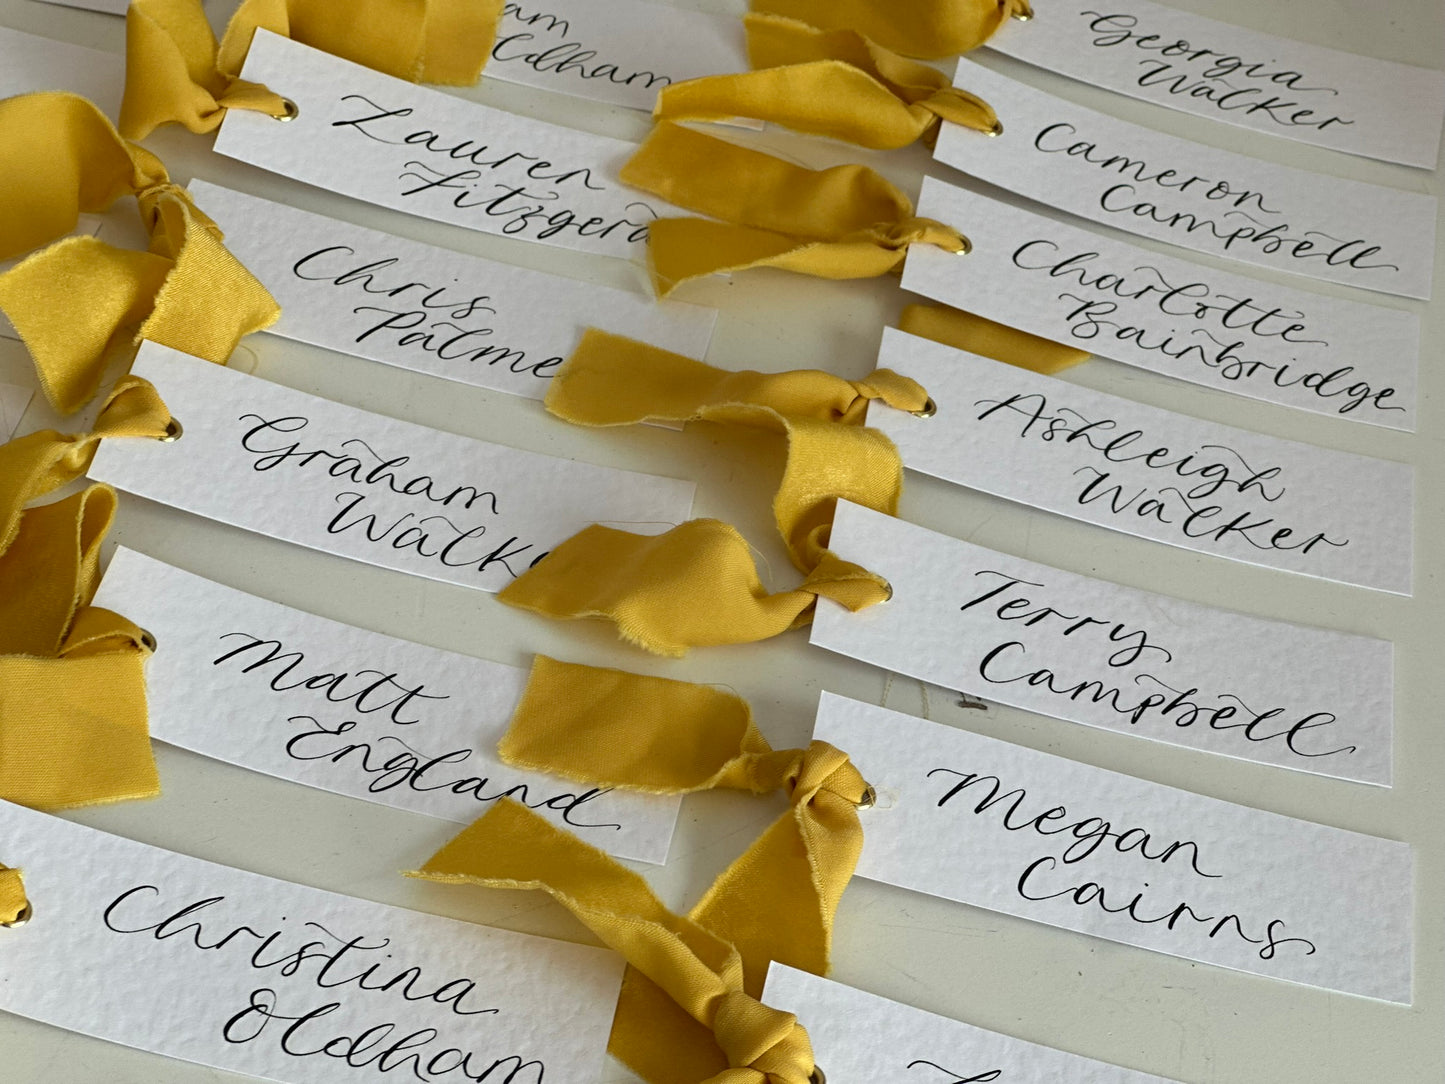 am
Oldham
Lauren
Fitzgera
Chris
Palme
Graham
Walk
Matt
England
Christina
Oldham
Georgia
Walker
Cameron
Campbell
Charlotte
Bainbridge
Ashleigh
Walker
Terry
Campbell
Megan
Cairns